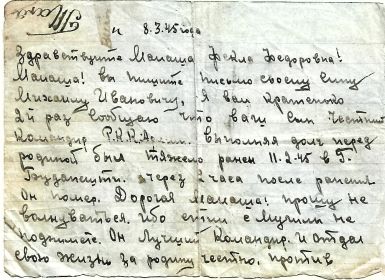 8.3.45 года
Здравствуйте Мамаша Фекла Федоровна!
Мамаша! вы пишите письмо своему сину
Михаилу Ивановичу, я вам кратенько
2й раз сообщаю что ваш сын честный
командир Р.К.К.А. выполняя долг перед
родиной был тяжело ранен 11.2.45 в г.
Будапешти. через 2 часа после ранения
Он помер. Дорогая мамаша! прошу не
волнуваться. ибо етим с Мучины не
поднимете. Он лучший Командир. и отдал
свою жизнь за родину честно, против